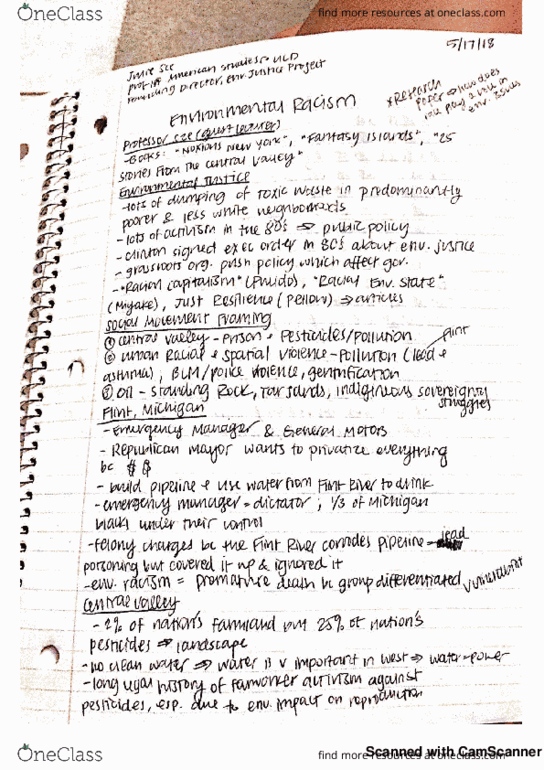 OneClass
find more resources at oneclass.com
5/17/18
Julie Sze
prof of American Studies @ UCD
Founding Director, env. Justice Project
* Research
paper → how does
race play a role in
env. issues
Environmental Racism
Professor Sze (guest lecturer)
- Books: "Noxious New York", "Fantasy Islands", "25
stories from the central valley"
Environmental Justice
- lots of dumping of toxic waste in predominantly
poorer & less white neighborhoods
- lots of activism in the 80s ⇒ public policy
- clinton signed exec order in 80s about env. justice
- grassroots org. push policy which affect gov.
- "Racial capitalism" (Pulido), "Racial Env. State"
(Miyake), Just Resilience (Pellow) ⇒ articles
Social Movement Framing
① central valley - Prison + Pesticides/Pollution
Flint
② Urban Racial + Spatial Violence - Pollution (lead +
asthma), BLM/police violence, gentrification
③ Oil - Standing Rock, Tar sands, indiginous sovereignty
struggles
Flint, Michigan
- Emergency Manager & General Motors
- Republican mayor wants to privatize everything
bc $$
- build pipeline + use water from Flint River to drink
- emergency manager = dictator; 1/3 of Michigan
blacks under their control
- felony charges bc the Flint River corrodes pipeline → lead
poisoning but covered it up & ignored it
- env. racism = premature death by group differentiated vulnerability
Central Valley
- 2% of nation's farmland but 25% of nation's
pesticides ⇒ landscape
- no clean water ⇒ water is v important in west ⇒ water = power
- long legal history of farmworker activism against
pesticides, esp. due to env. impact on reproduction
OneClass
find more resources at oneclass.com
Scanned with CamScanner